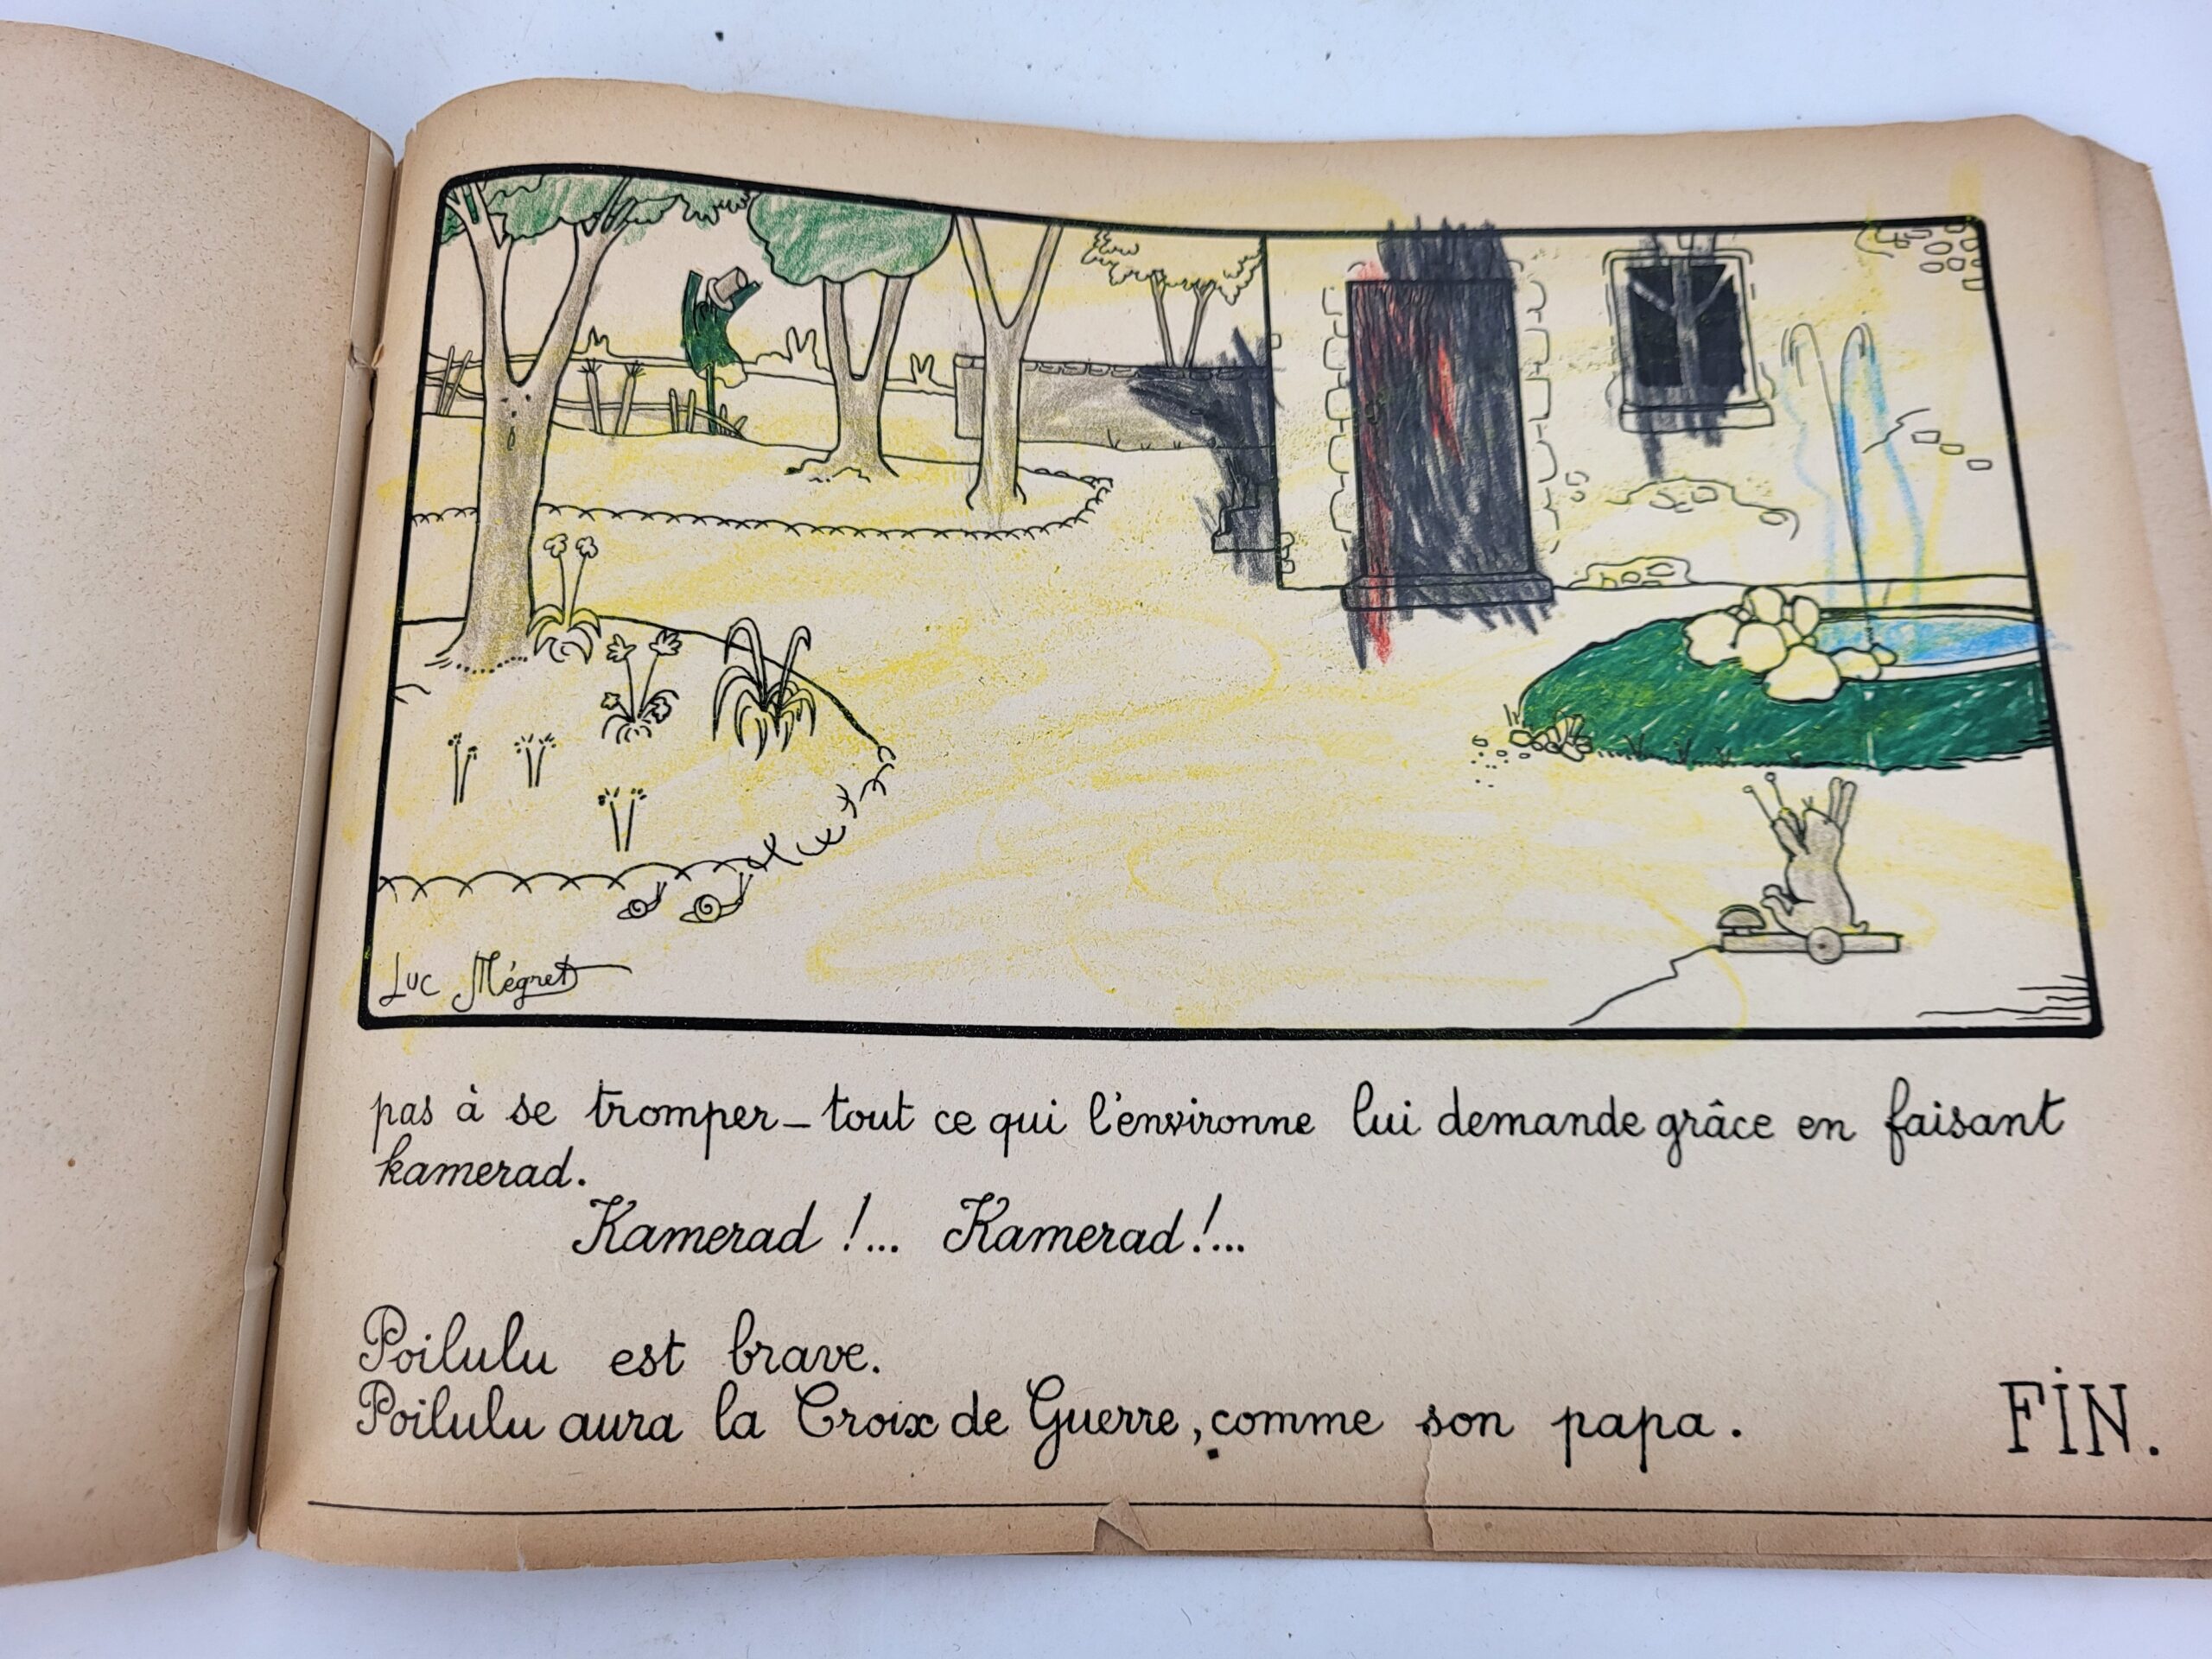 Luc Mégret
pas à se tromper_tout ce qui l'environne lui demande grâce en faisant
kamerad.
Kamerad !... Kamerad !...
Poilulu est brave.
Poilulu aura la Croix de Guerre, comme son papa.
FIN.